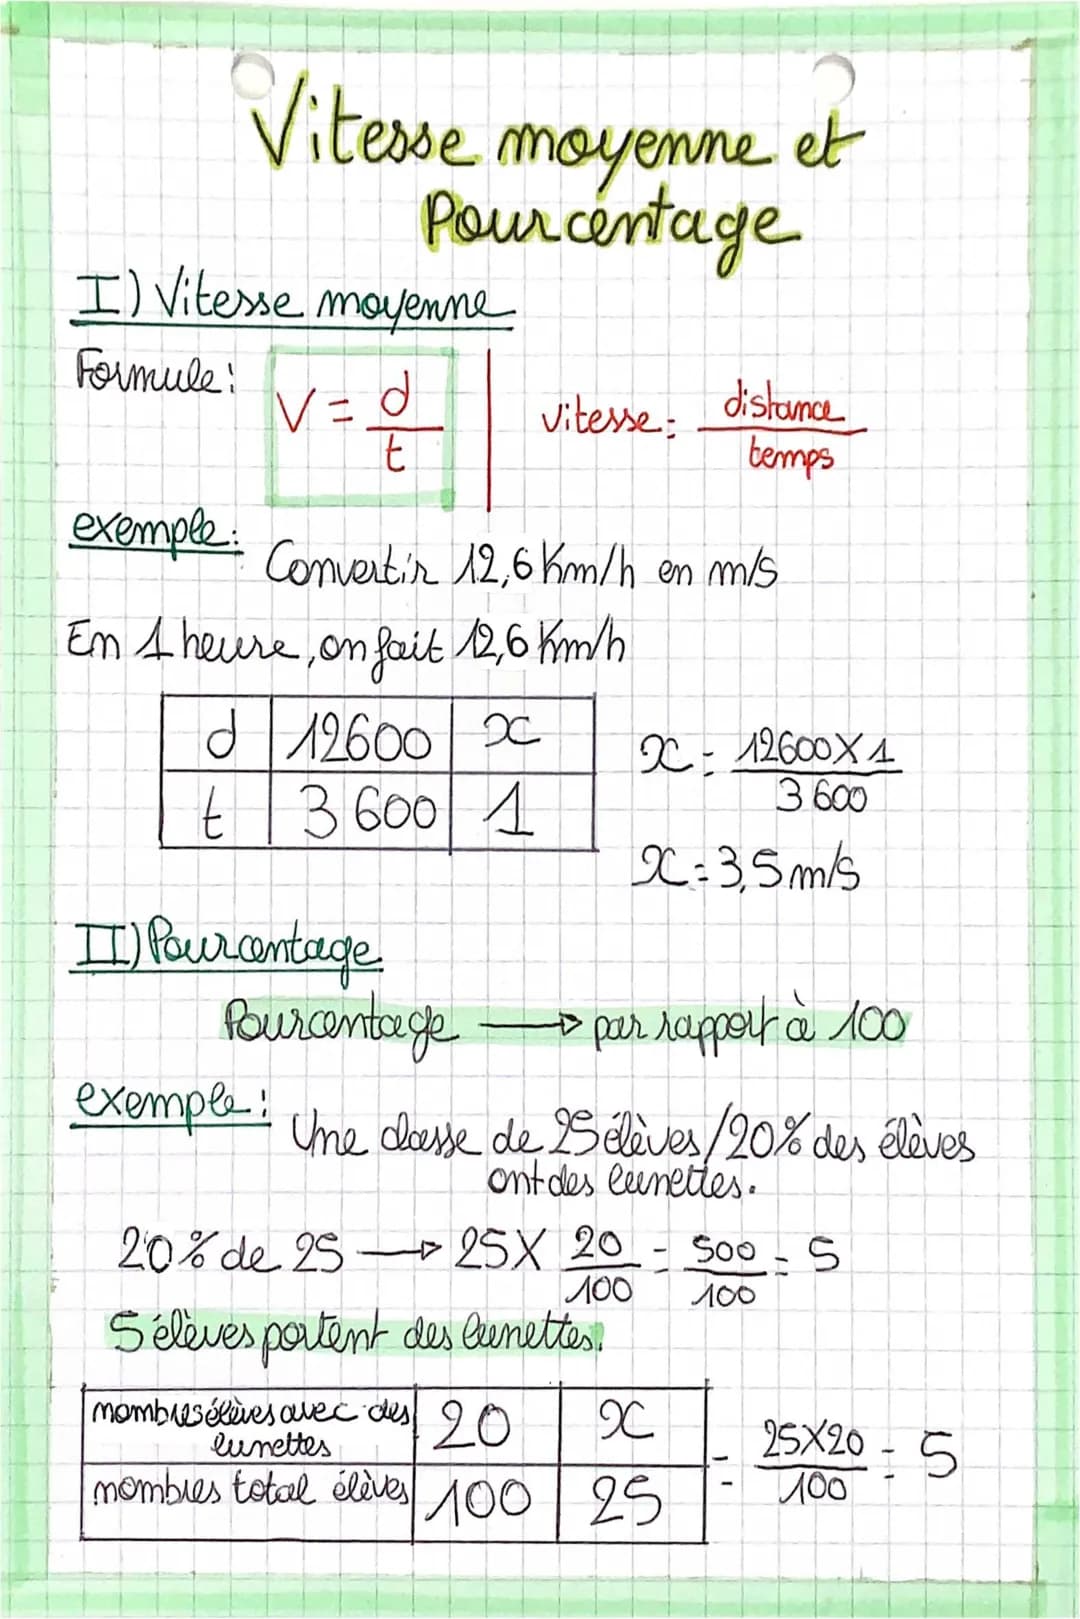 Vitesse moyenne et
Pourcentage
I) Vitesse moyenne
Formule:
V = d/t | vitesse = distance/temps
exemple:
Convertir 12,6 Km/h en m/s
En 1 heure, on fait 12,6 Km/h
d | 12600 | x
t | 3 600 | 1
x = 12600 X 1 / 3 600
x = 3,5 m/s
II) Pourcentage
Pourcentage → par rapport à 100
exemple:
Une classe de 25 élèves / 20% des élèves
ont des lunettes.
20% de 25 → 25 X 20/100 = 500/100 = 5
5 élèves portent des lunettes.
nombres élèves avec des
lunettes | 20 | x
nombres total élèves | 100 | 25
= 25X20/100 = 5